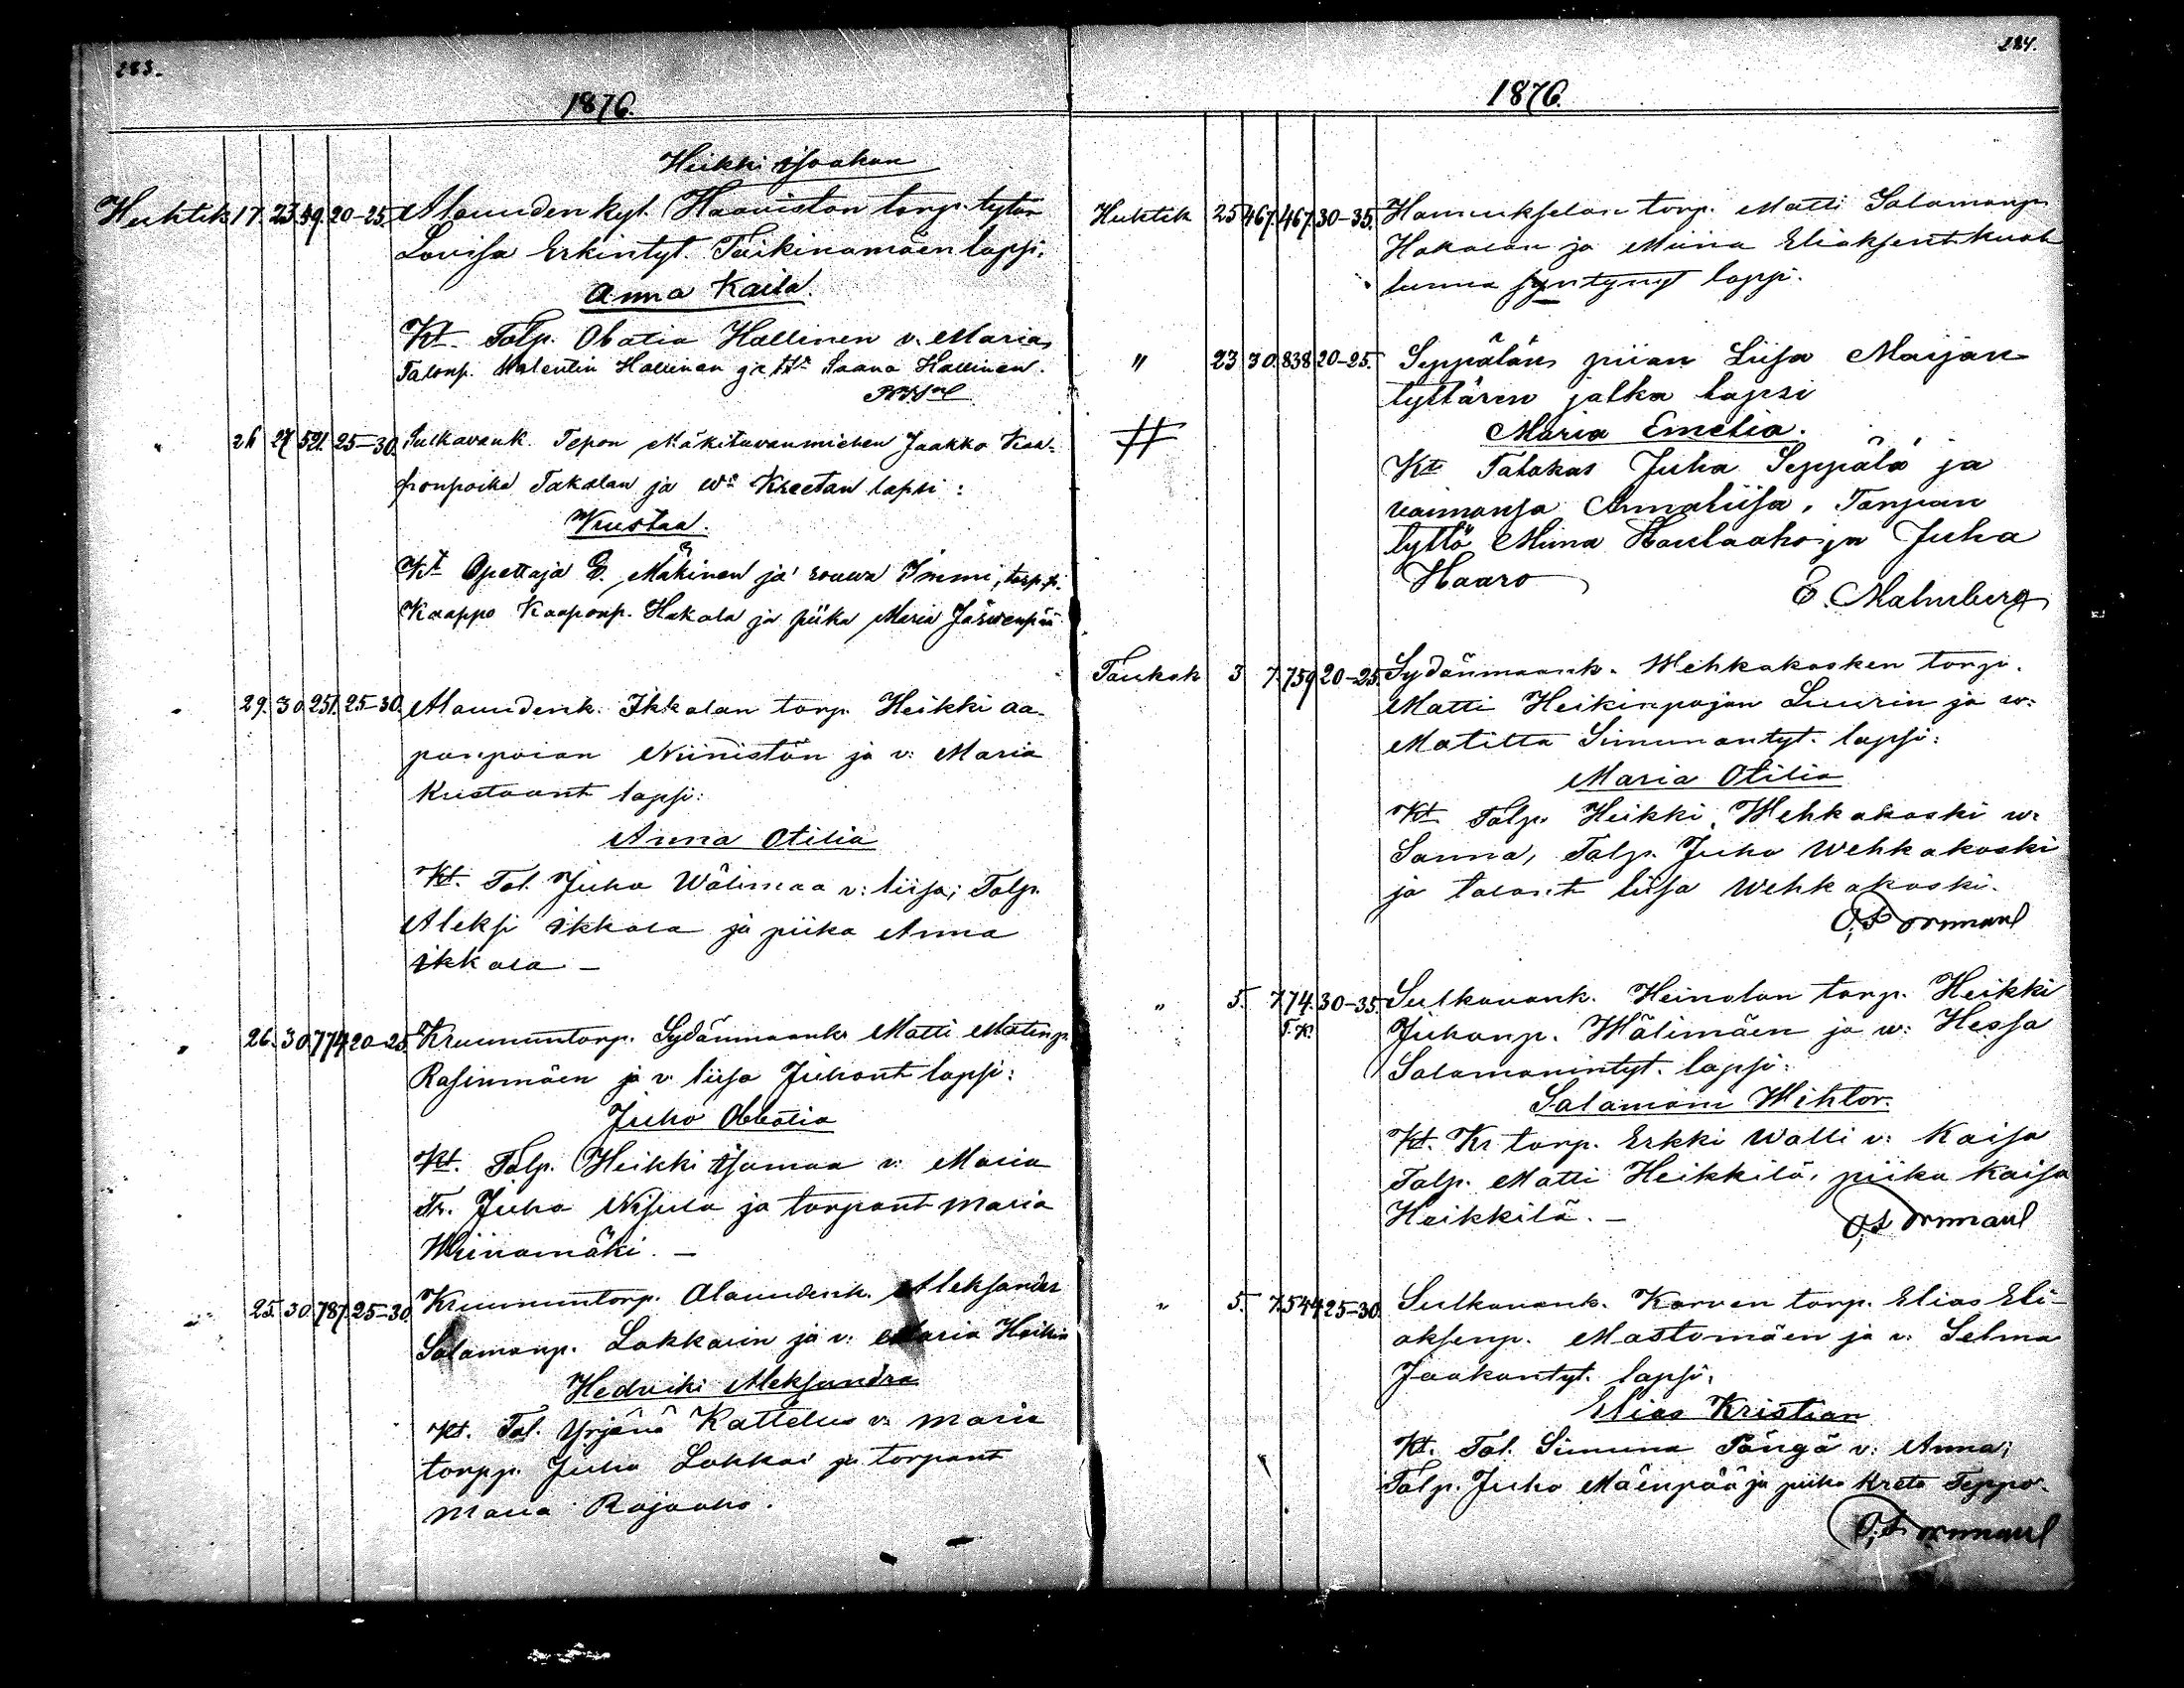 283.
1876.
Heikki Isaakan
Huhtik 17. 23. 59. 20-25. Alauudenkyl. Haaviston torp. tytön
Lovisa Erkintyt. Taikinamäen lapsi:
Anna Kaisa.
Kt. Talp. Obatia Hallinen v. Maria,
Talonp. Valentin Hallinen ja Saana Hallinen.
" 26 27 521. 25-30. Sulkavank. Tepon Mäkituvanmiehen Jaakko Kaa-
ponpoika Takalan ja w: Kreetan lapsi:
Kustaa.
Kt Opettaja E. Mäkinen ja rouva Immi, torp.p.
Kaappo Kaaponp. Hakala ja piika Maria Järvenpää
" 29. 30. 251. 25-30. Alauudenk. Ikkalan torp. Heikki Aa-
ponpoian Niinistön ja v: Maria
Kustaant lapsi:
Anna Otilia
Kt. Tal. Juho Wälimaa v: Liisa; Talp.
Aleksi Ikkala ja piika Anna
Ikkala —
" 26. 30. 774 20-25. Kruununtorp. Sydänmaank Matti Matinp.
Rasinmäen ja v. Liisa Juhont lapsi:
Juho Obatia
Kt. Talp. Heikki Isomaa v: Maria
Tr. Juho Nisula ja torpant Maria
Wiinamäki. —
" 25. 30. 787. 25-30. Kruununtorp. Alauudenk. Aleksander
Salamonp. Lokkarin ja v: Maria Heikin
Hedviki Aleksandra
Kt. Tal. Yrjänä Kattelus v: Maria
torpp. Juho Lokkari ja torpant
Maria Rajaaho.
284.
1876.
Huhtik 25 467. 467. 30-35. Hanukselan torp. Matti Salamonp.
Hakalan ja Miina Eliaksent kuol-
lunna syntynyt lapsi.
" 23 30. 838 20-25. Seppälän piian Liisa Maijan-
tyttären jalka lapsi
# Maria Emelia.
Kt Talokas Juha Seppälä ja
vaimonsa Annaliisa, Torpan
tyttö Miina Haulaaho ja Juha
Haaro
E. Malmberg
Toukok 3 7. 759 20-25. Sydänmaank. Wehkakosken torp.
Matti Heikinpojan Luurin ja w:
Matilta Simunantyt. lapsi:
Maria Otilia
Kt Talp. Heikki Wehkakoski w:
Sanna, Talp. Juho Wehkakoski
ja talont Liisa Wehkakoski.
" 5. 7. 74. 30-35. Sulkavank. Heinolan torp. Heikki
T.K. Juhonp. Wälimäen ja w: Hessa
Salamonintyt. lapsi:
Salamoni Wihtor.
Kt. Kr torp. Erkki Walli v: Kaisa
Talp. Matti Heikkilä, piika Kaisa
Heikkilä. —
" 5. 7. 544 25-30. Sulkavank. Korven torp. Elias Eli-
aksenp. Mastomäen ja v: Selma
Jaakontyt. lapsi,
Elias Kristian
Kt. Tal. Simuna Pöngä v: Anna;
Talp. Juho Mäenpää ja piika Kreta Teppo.